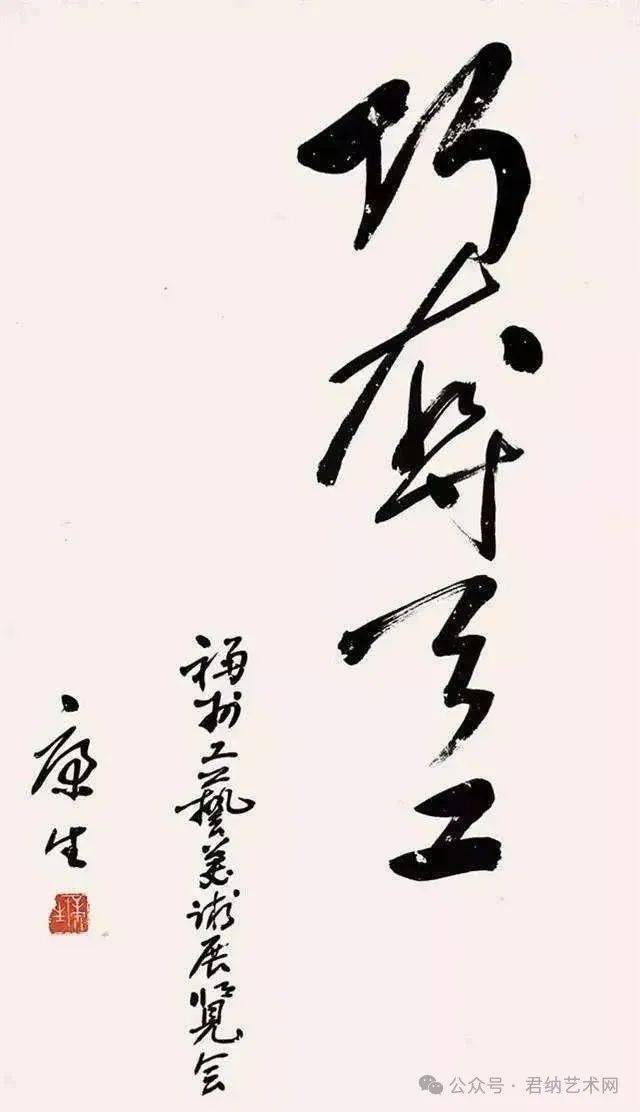 巧夺天工
福州工藝美术展覧会
康生
康生
公众号·君纳艺术网